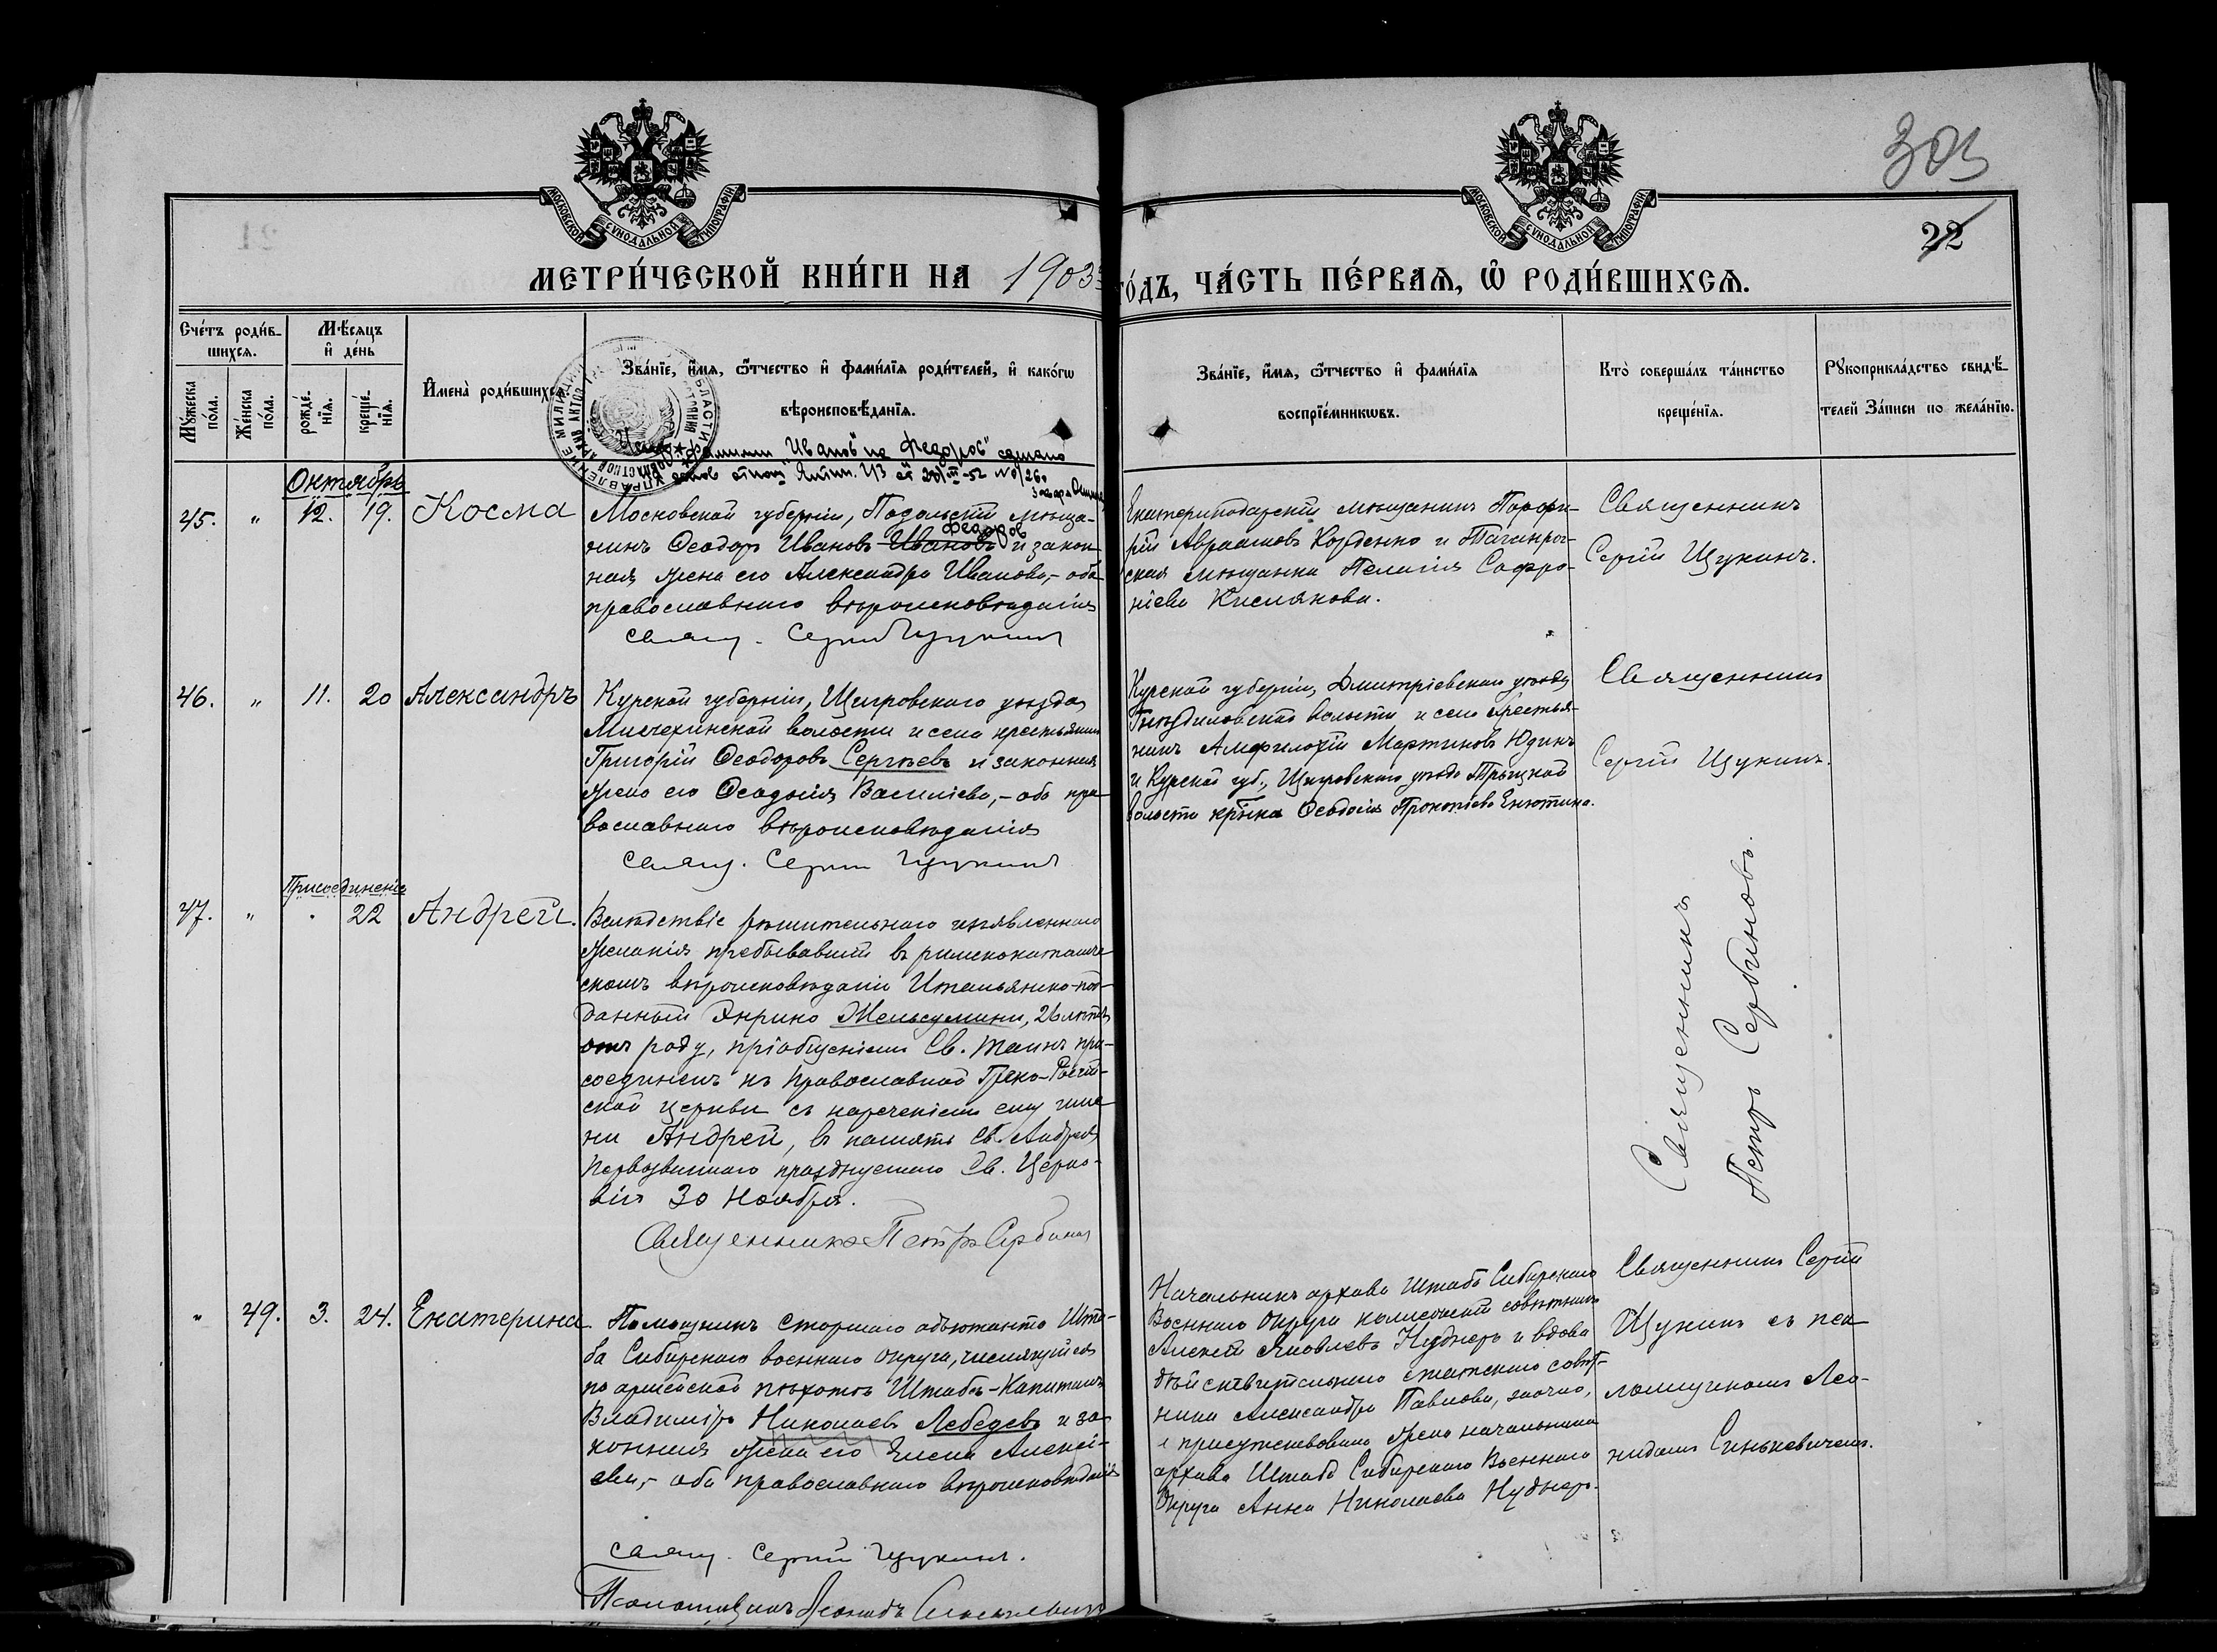 303
22
МОСКОВСКОЙ СѴНОДАЛЬНОЙ ТИПОГРАФІИ
МОСКОВСКОЙ СѴНОДАЛЬНОЙ ТИПОГРАФІИ
МЕТРИ́ЧЕСКОЙ КНИ́ГИ НА 1903
ГО́ДЪ, ЧА́СТЬ ПЕ́РВАѦ, Ѡ҆ РОДИ́ВШИХСѦ.
Сче́тъ роди́в-
шихсѧ.
Мѣ́сѧцъ
и҆ де́нь
Мꙋ́жеска
по́ла.
Же́нска
по́ла.
рожде́-
нїѧ.
креще́-
нїѧ.
И҆мена̀ роди́вшихсѧ.
Зва́нїе, и҆́мѧ, ѻ҆́тчество и҆ фами́лїѧ роди́телей, и҆ како́гѡ
вѣроисповѣ́данїѧ.
Зва́нїе, и҆́мѧ, ѻ҆́тчество и҆ фами́лїѧ
воспрїе́мникѡвъ.
Кто̀ соверша́лъ та́инство
креще́нїѧ.
Рꙋкоприкла́дство свидѣ́-
телей За́писи по жела́нїю.
фамилии "Иванов" на "Федоров" сделано
Октябрь
45. " 12. 19. Косма
Московской губерніи, Подольскій мѣща-
Федоров
нинъ Ѳеодоръ Ивановъ Ивановъ и закон-
ная жена его Александра Иванова,- оба
православнаго вѣроисповѣданія
свящ. Сергій Щукинъ
Екатеринодарскій мѣщанинъ Порфи-
рій Авраамовъ Корбенко и Таганрог-
ская мѣщанка Пелагія Софро-
ніева Кислякова.
Священникъ
Сергій Щукинъ.
46. " 11. 20 Александръ
Курской губерніи, Щигровскаго уѣзда
волости и села крестьянинъ
Григорій Ѳеодоровъ Сергѣевъ и законная
жена его Ѳеодосія Василіева,- оба пра-
вославнаго вѣроисповѣданія
свящ. Сергій Щукинъ
Курской губерніи, Дмитріевскаго уѣзда
волости и села крестья-
нинъ Амфилохій Мартиновъ Юдинъ
и Курской губ., Щигровскаго уѣзда Троицкой
волости кр-нка Ѳеодосія Прокопіева Енютина.
Священникъ
Сергій Щукинъ.
Присоединеніе
47. " " 22 Андрей.
Вслѣдствіе рѣшительнаго изъявленнаго
желанія пребывавшій въ римскокатоличе-
скомъ вѣроисповѣданіи Итальянско-под-
данный Энрико Жельсумини, 26 лѣтъ
отъ роду, пріобщеніемъ Св. Таинъ при-
соединенъ къ Православной Греко-Россій-
ской церкви съ нареченіемъ ему име-
ни Андрей, въ память св. Андрея
Первозваннаго празднуемаго Св. Церко-
вію 30 Ноября.
Священникъ Петръ Сербиновъ
Священникъ
Петръ Сербиновъ.
" 49. 3. 24. Екатерина
Помощникъ старшаго адъютанта Шта-
ба Сибирскаго военнаго округа, числящійся
по армейской пѣхотѣ Штабсъ-Капитанъ
Владиміръ Николаевъ Лебедевъ и за-
конная жена его Елена Алексі-
ева,- оба православнаго вѣроисповѣданія
свящ. Сергій Щукинъ.
Псаломщикъ Леонидъ Синькевичъ
Начальникъ архива Штаба Сибирскаго
Военнаго Округа коллежскій совѣтникъ
Алексѣй Яковлевъ Нуднеръ и вдова
дѣйствительнаго статскаго совѣт-
ника Александра Павлова, заочно,
и присутствовала жена начальника
архива Штаба Сибирскаго Военнаго
Округа Анна Николаева Нуднеръ.
Священникъ Сергій
Щукинъ съ пса-
ломщикомъ Лео-
нидомъ Синькевичемъ.